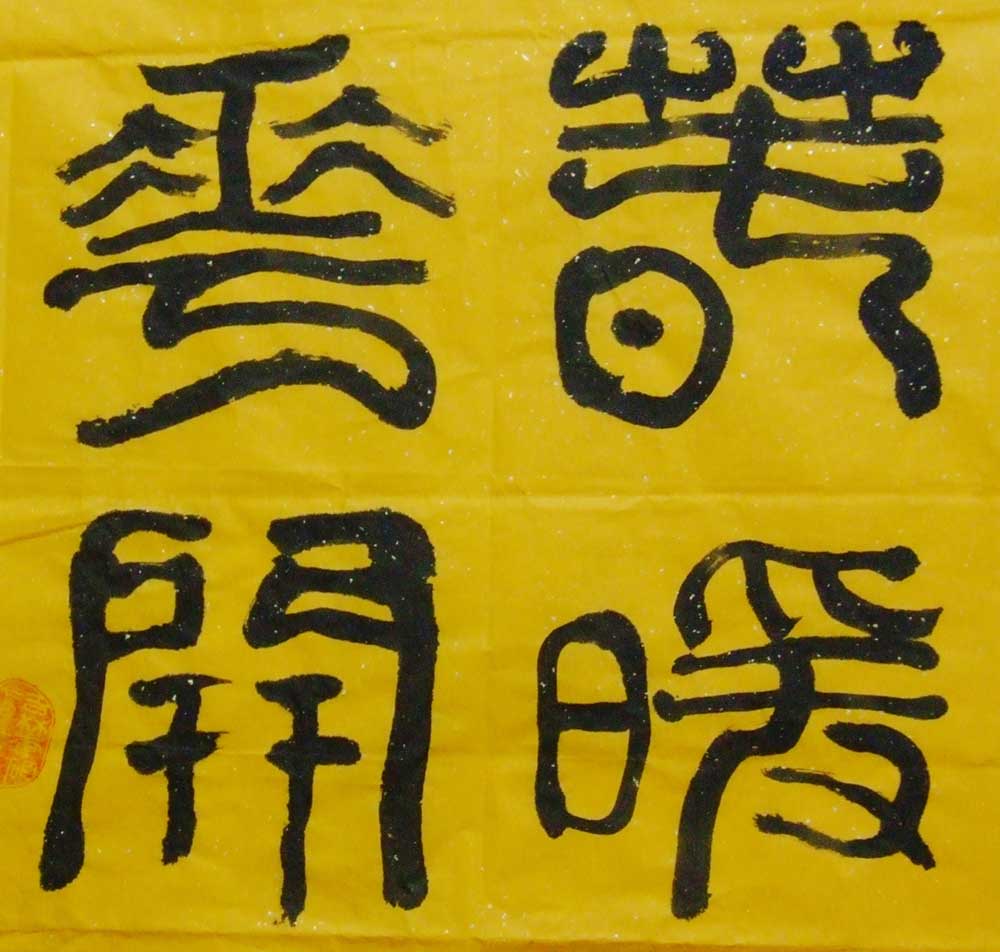 春暖
花開